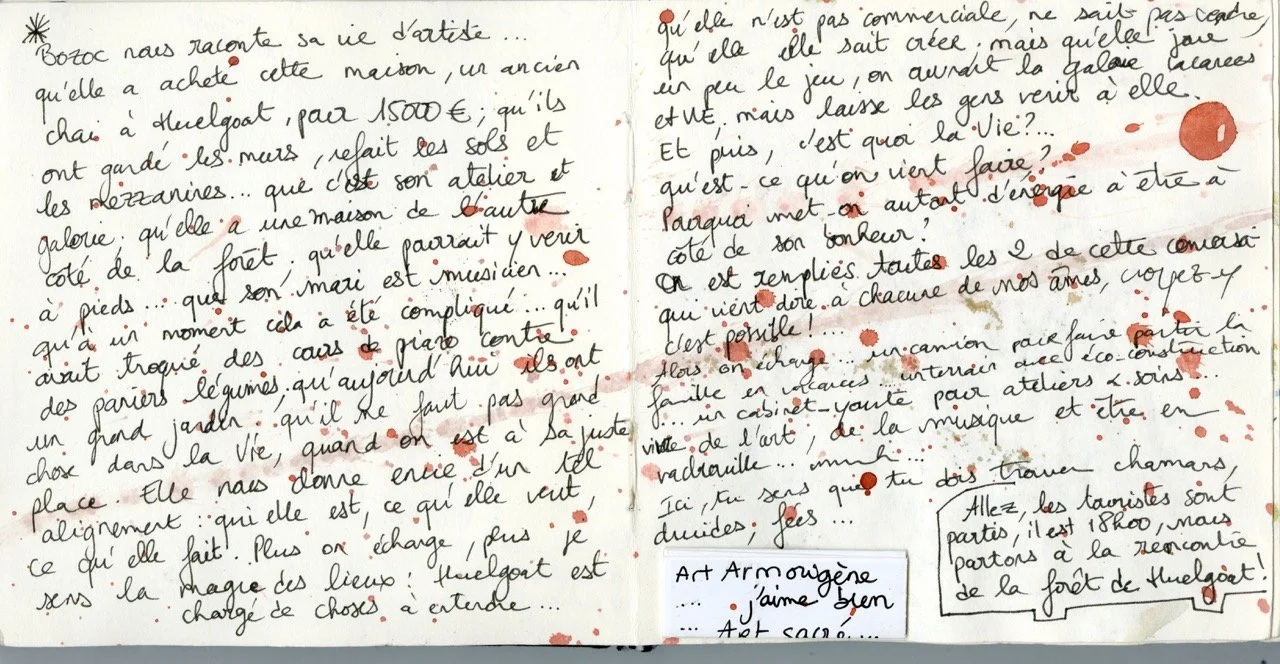 Bozoc nous raconte sa vie d'artiste...
qu'elle a acheté cette maison, un ancien
chai à Huelgoat, pour 15000 €; qu'ils
ont gardé les murs, refait les sols et
les mezzanines... que c'est son atelier et
galerie. qu'elle a une maison de l'autre
côté de la forêt. qu'elle pourrait y venir
à pieds... que son mari est musicien...
qu'à un moment cela a été compliqué... qu'il
avait troqué des cours de piano contre
des paniers légumes, qu'aujourd'hui ils ont
un grand jardin. qu'il ne faut pas grand
chose dans la Vie, quand on est à sa juste
place. Elle nous donne envie d'un tel
alignement : qui elle est, ce qu'elle veut,
ce qu'elle fait. Plus on échange, plus je
sens la magie des lieux : Huelgoat est
chargé de choses à entendre...
qu'elle n'est pas commerciale, ne sait pas vendre,
qu'elle elle sait créer. mais qu'elle joue
un peu le jeu, en ouvrant la galerie vacances
et WE, mais laisse les gens venir à elle.
Et puis, c'est quoi la Vie?...
qu'est-ce qu'on vient faire?
Pourquoi met-on autant d'énergie à être à
côté de son bonheur?
On est remplies toutes les 2 de cette conversa-
qui vient dore à chacune de nos âmes, croyez-y
c'est possible!...
Alors on échange... un camion pour faire partir la
famille en vacances... un terrain avec éco-construction
... un cabinet-yourte pour ateliers & soins...
vivre de l'art, de la musique et être en
vadrouille... mmmh...
Ici, tu sens que tu dois trouver chamans,
druides, fées...
Art Armorigène
.... j'aime bien
... Art sacré...
Allez, les touristes sont
partis, il est 18h00, nous
partons à la rencontre
de la forêt de Huelgoat!